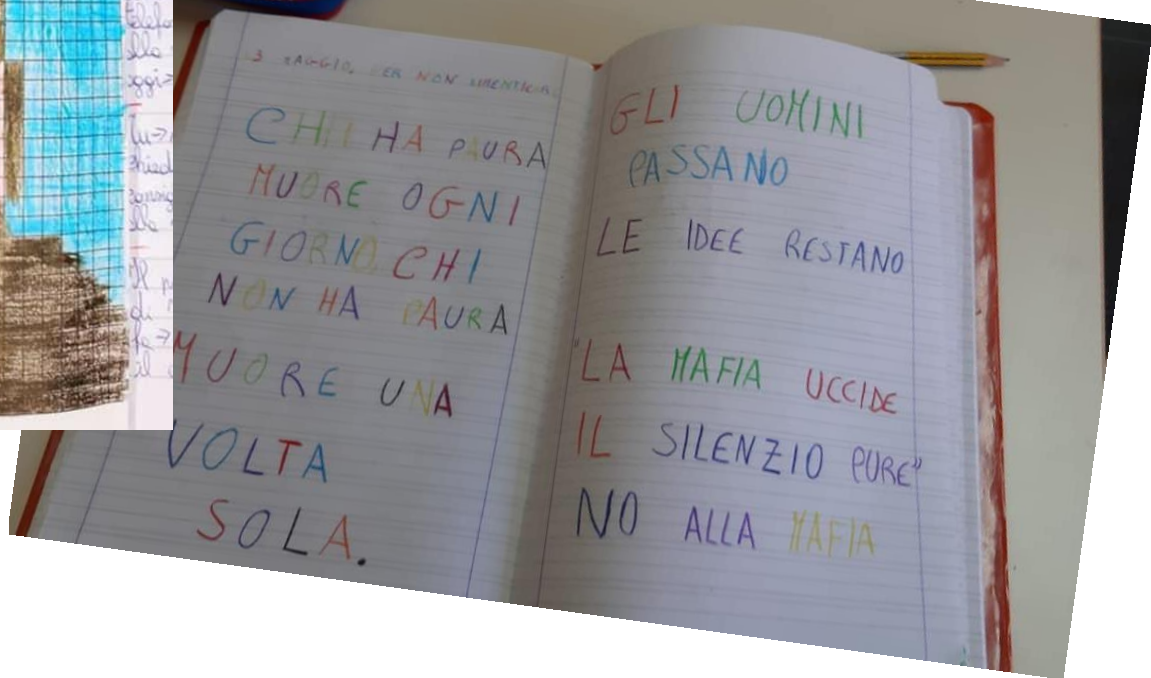 3 MAGGIO, PER NON DIMENTICARE
CHI HA PAURA
MUORE OGNI
GIORNO, CHI
NON HA PAURA
MUORE UNA
VOLTA
SOLA.
GLI UOMINI
PASSANO
LE IDEE RESTANO
"LA MAFIA UCCIDE
IL SILENZIO PURE"
NO ALLA MAFIA